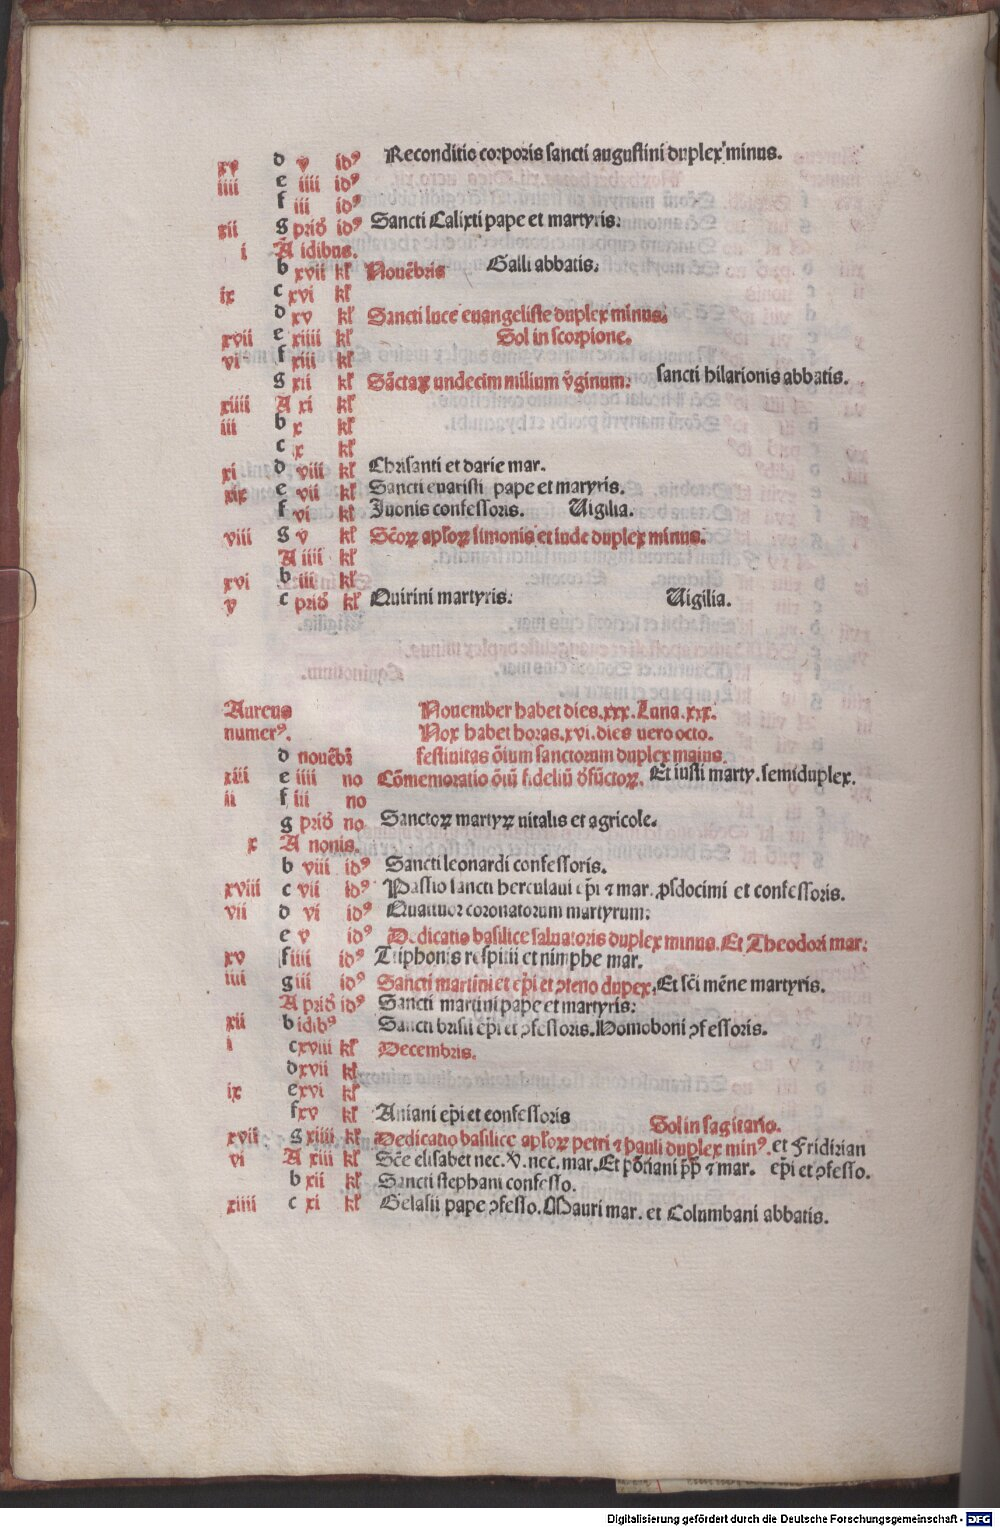 xv d v idꝰ Reconditio corporis sancti augustini duplex minus.
iiii e iiii idꝰ
f iii idꝰ
xii g prid idꝰ Sancti Calixti pape et martyris.
i A idibus.
b xvii kł Nouēbris Galli abbatis.
ix c xvi kł
d xv kł Sancti luce euangeliste duplex minus.
xvii e xiiii kł Sol in scorpione.
vi f xiii kł
g xii kł Sāctaꝝ undecim milium v̄ginum. sancti hilarionis abbatis.
xiiii A xi kł
iii b x kł
c x kł
xi d viii kł Chrisanti et darie mar.
xix e vii kł Sancti euaristi pape et martyris.
f vi kł Iuonis confessoris. Uigilia.
viii g v kł Sc̄oꝝ apl̄oꝝ simonis et iude duplex minus.
A iiii kł
xvi b iii kł
v c prid kł Quirini martyris. Uigilia.
Aureus Nouember habet dies.xxx.Luna.xxx.
numerꝰ. Nox habet horas.xvi.dies uero octo.
d nouēbr̄ festiuitas ōium sanctorum duplex maius.
xiii e iiii no Cōmemoratio ōiū fideliū dēfūctoꝝ. Et iusti marty.semiduplex.
ii f iii no
g prid no Sanctoꝝ martyꝝ uitalis et agricole.
x A nonis.
b viii idꝰ Sancti leonardi confessoris.
xviii c vii idꝰ Passio sancti herculaui ep̄i ⁊ mar. ꝓsdocimi et confessoris.
vii d vi idꝰ Quattuor coronatorum martyrum.
e v idꝰ Dedicatio basilice saluatoris duplex minus. Et Theodori mar.
xv f iiii idꝰ Triphonis respitii et nimphe mar.
iiii g iii idꝰ Sancti martini et ep̄i et ꝯteno dupex, Et sc̄i mēne martyris.
A prid idꝰ Sancti martini pape et martyris.
xii b idibꝰ Sancti brisii ep̄i et ꝯfessoris. Homoboni ꝯfessoris.
i c xviii kł Decembris.
d xvii kł
ix e xvi kł
f xv kł Aniani ep̄i et confessoris Sol in sagitario.
xvii g xiiii kł Dedicatio basilice apl̄oꝝ petri ⁊ pauli duplex minꝰ. et Fridirian
vi A xiii kł Sc̄e elisabet nec. v̄. nec. mar. Et pōtiani pp̄ ⁊ mar. ep̄i et ꝯfesso.
b xii kł Sancti stephani confesso.
xiiii c xi kł Gelasii pape ꝯfesso. Mauri mar. et Columbani abbatis.
Digitalisierung gefördert durch die Deutsche Forschungsgemeinschaft - DFG